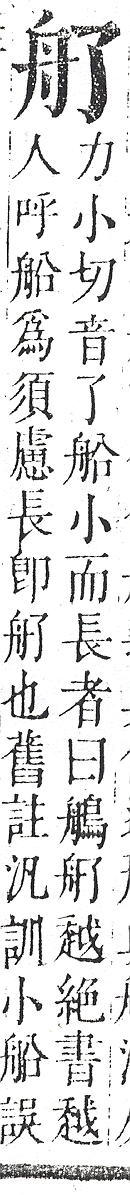 舠
力小切音了船小而長者曰䲽舠越絶書越
人呼船爲須慮長卽舠也舊註汎訓小船誤